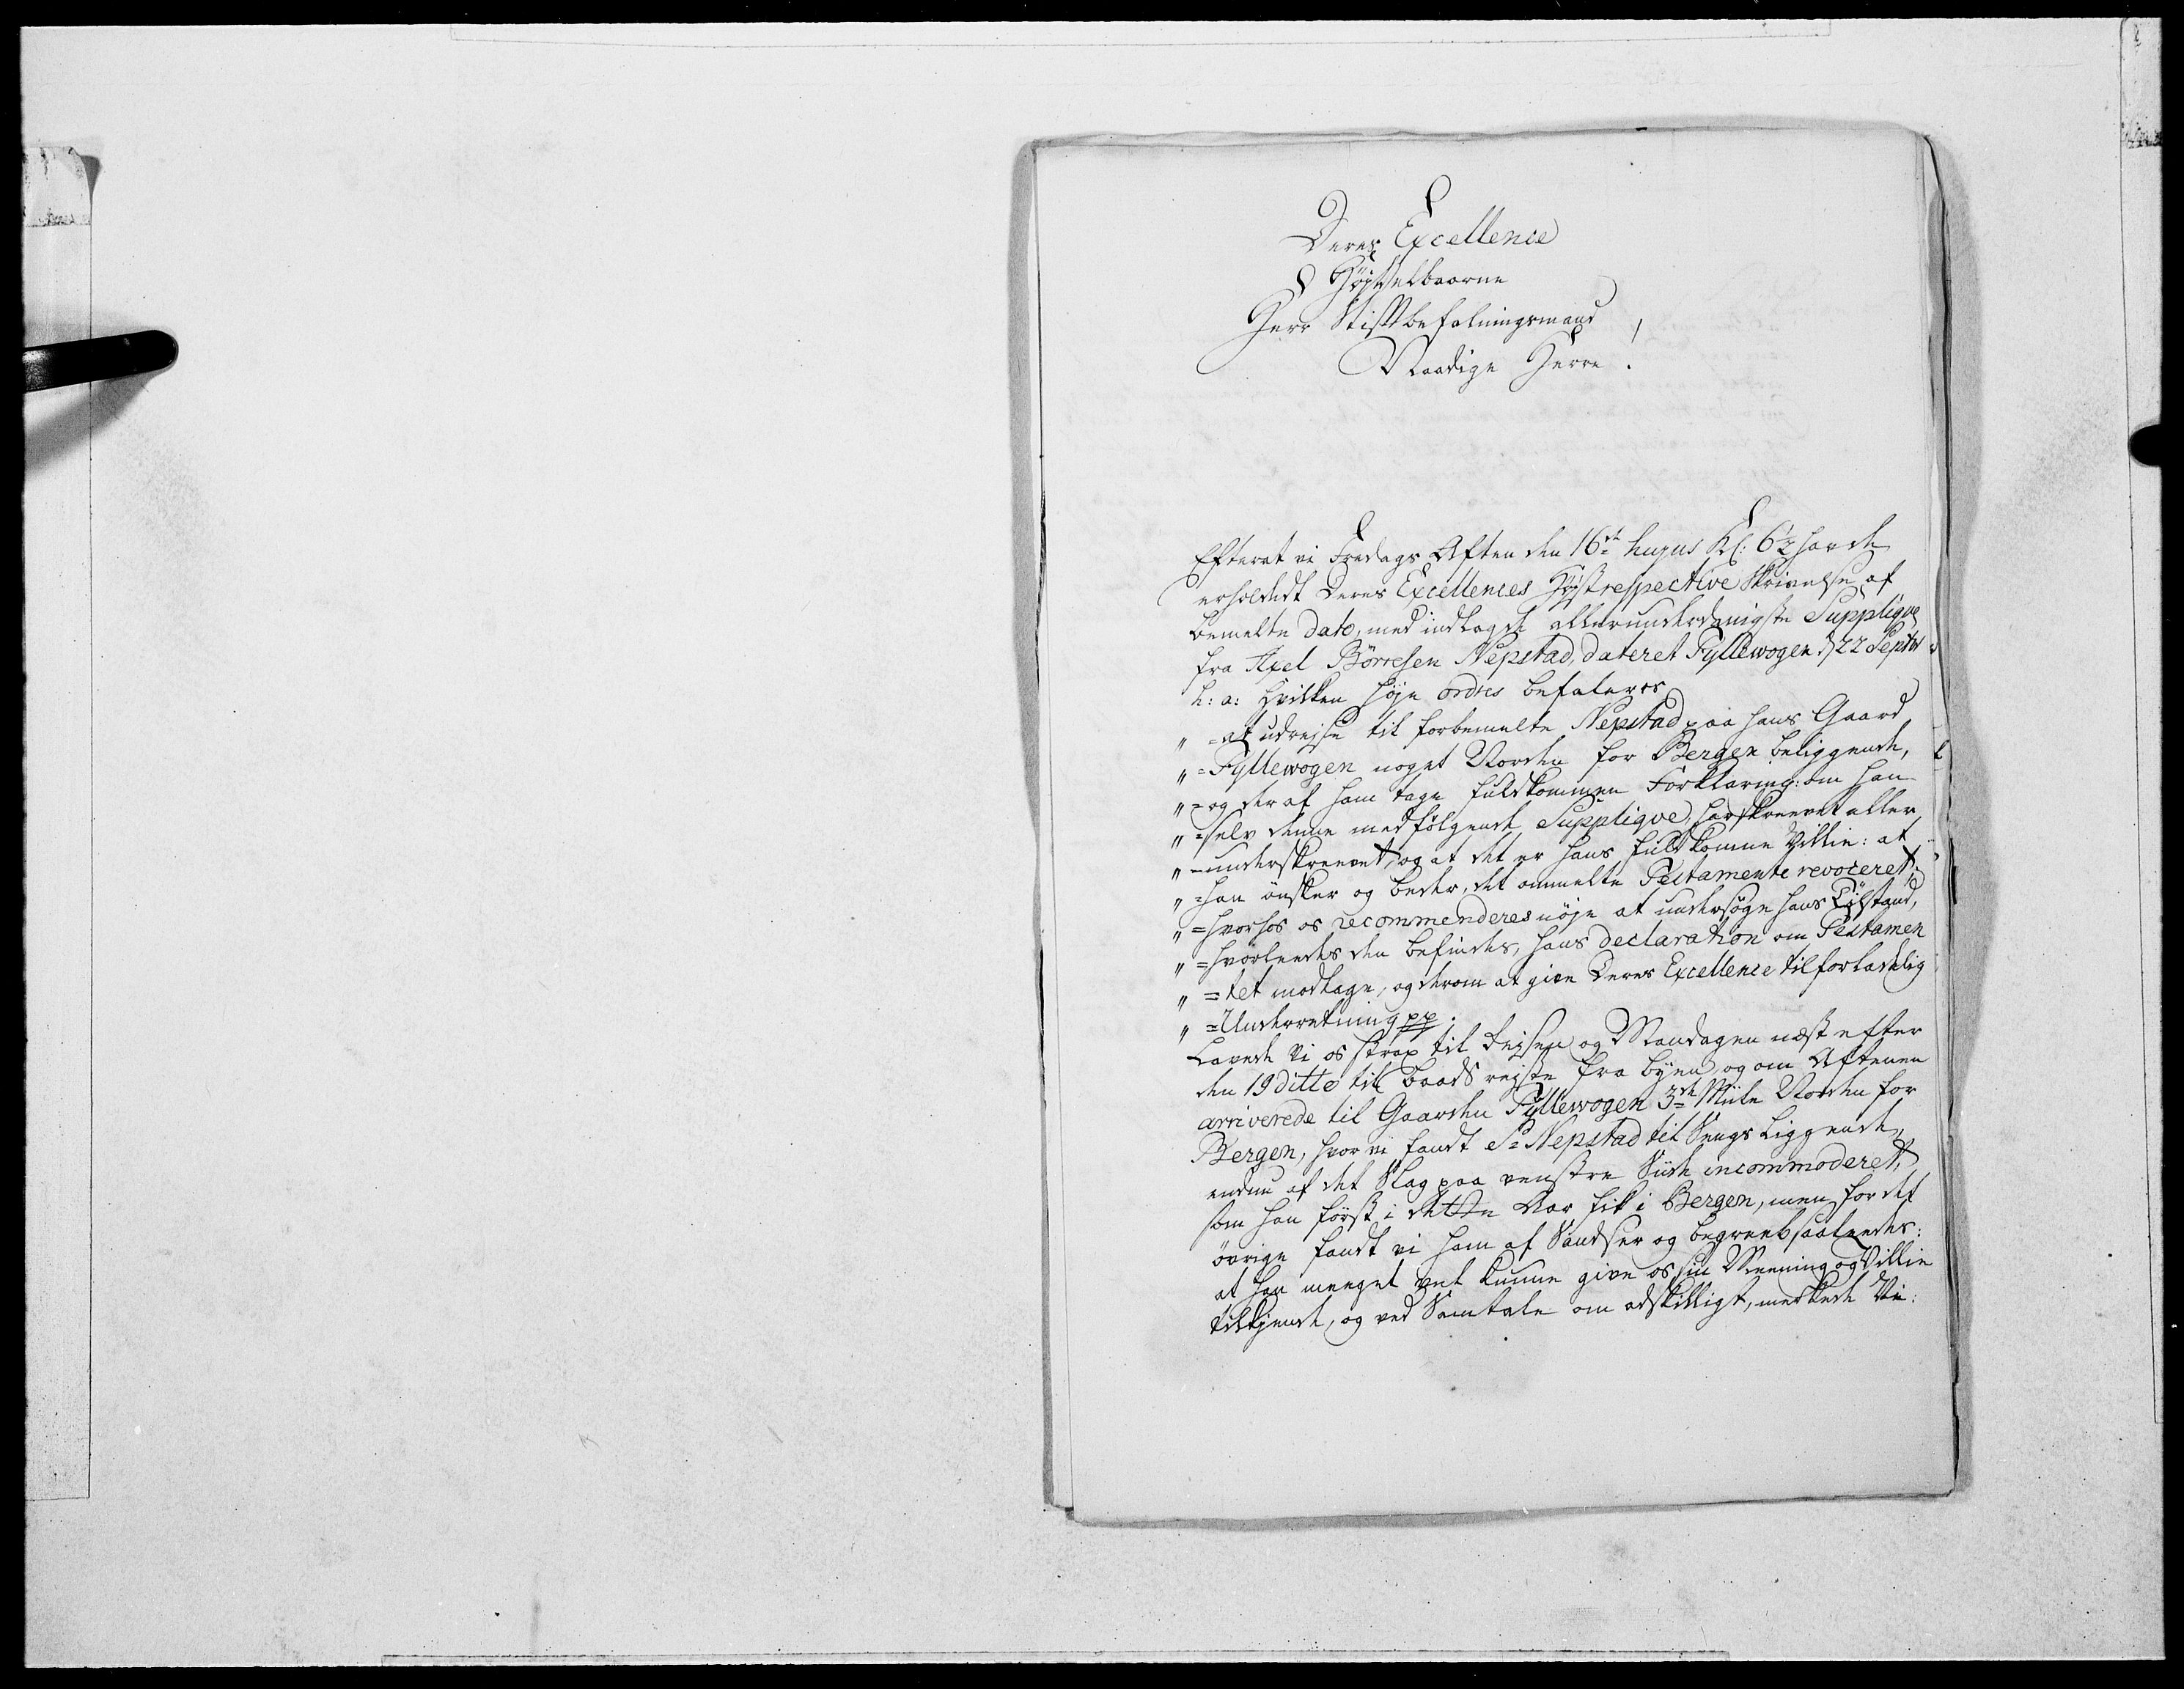 Deres Excellence
Højædelbaarne
Herr Stiftbefalningsmand
Naadige Herre!
Efterat vi Fredags Aften den 16de hujus Kl: 6½ hafde
erholdedt Deres Excellences Høystrespective Skrivelse af
bemelte dato, med indlagde allerunderdanigste Supplique
fra Axel Börresen Nepstad, dateret Fyllewogen d 22 Septbr
h: a: hvilken høje ordres befaler os
" = at udrejse til forbemelte Nepstad paa hans Gaard
" = Fyllewogen noget Norden for Bergen beliggende,
" = og der af ham tage fuldkommen Forklaring: om han
" = selv denne medfølgende Supplique, har skreevet eller
" = underskreevet, og at det er hans fuldkomne Villie: at
" = han ønsker og beder, det ommelte Testamente revoceret;
" = hvorhos os recommenderes nøje at undersøge hans Tilstand,
" = hvorleedes den befindes, hans declaration om Testamen
" = tet modtage, og derom at give Deres Excellence tilforladelig
" = Underretning pp.
Lavede Vi os strax til Rejsen og Mandagen næst efter
den 19 ditto til baads rejste fra byen, og om Aftenen
arriverede til Gaarden Fyllewogen 3de Miile Norden for
Bergen, hvor vi fandt Sr Nepstad til Sengs liggende,
endnu af det Slag paa venstre Siide incommoderet,
som han først i dette Aar fik i Bergen, men for det
øvrige fandt vi ham af Sandser og begreeb saaledes:
at han meeget vel kunne give os sin Meening og Villie
tilkjende, og ved Samtale om adskilligt, merkede Vi: